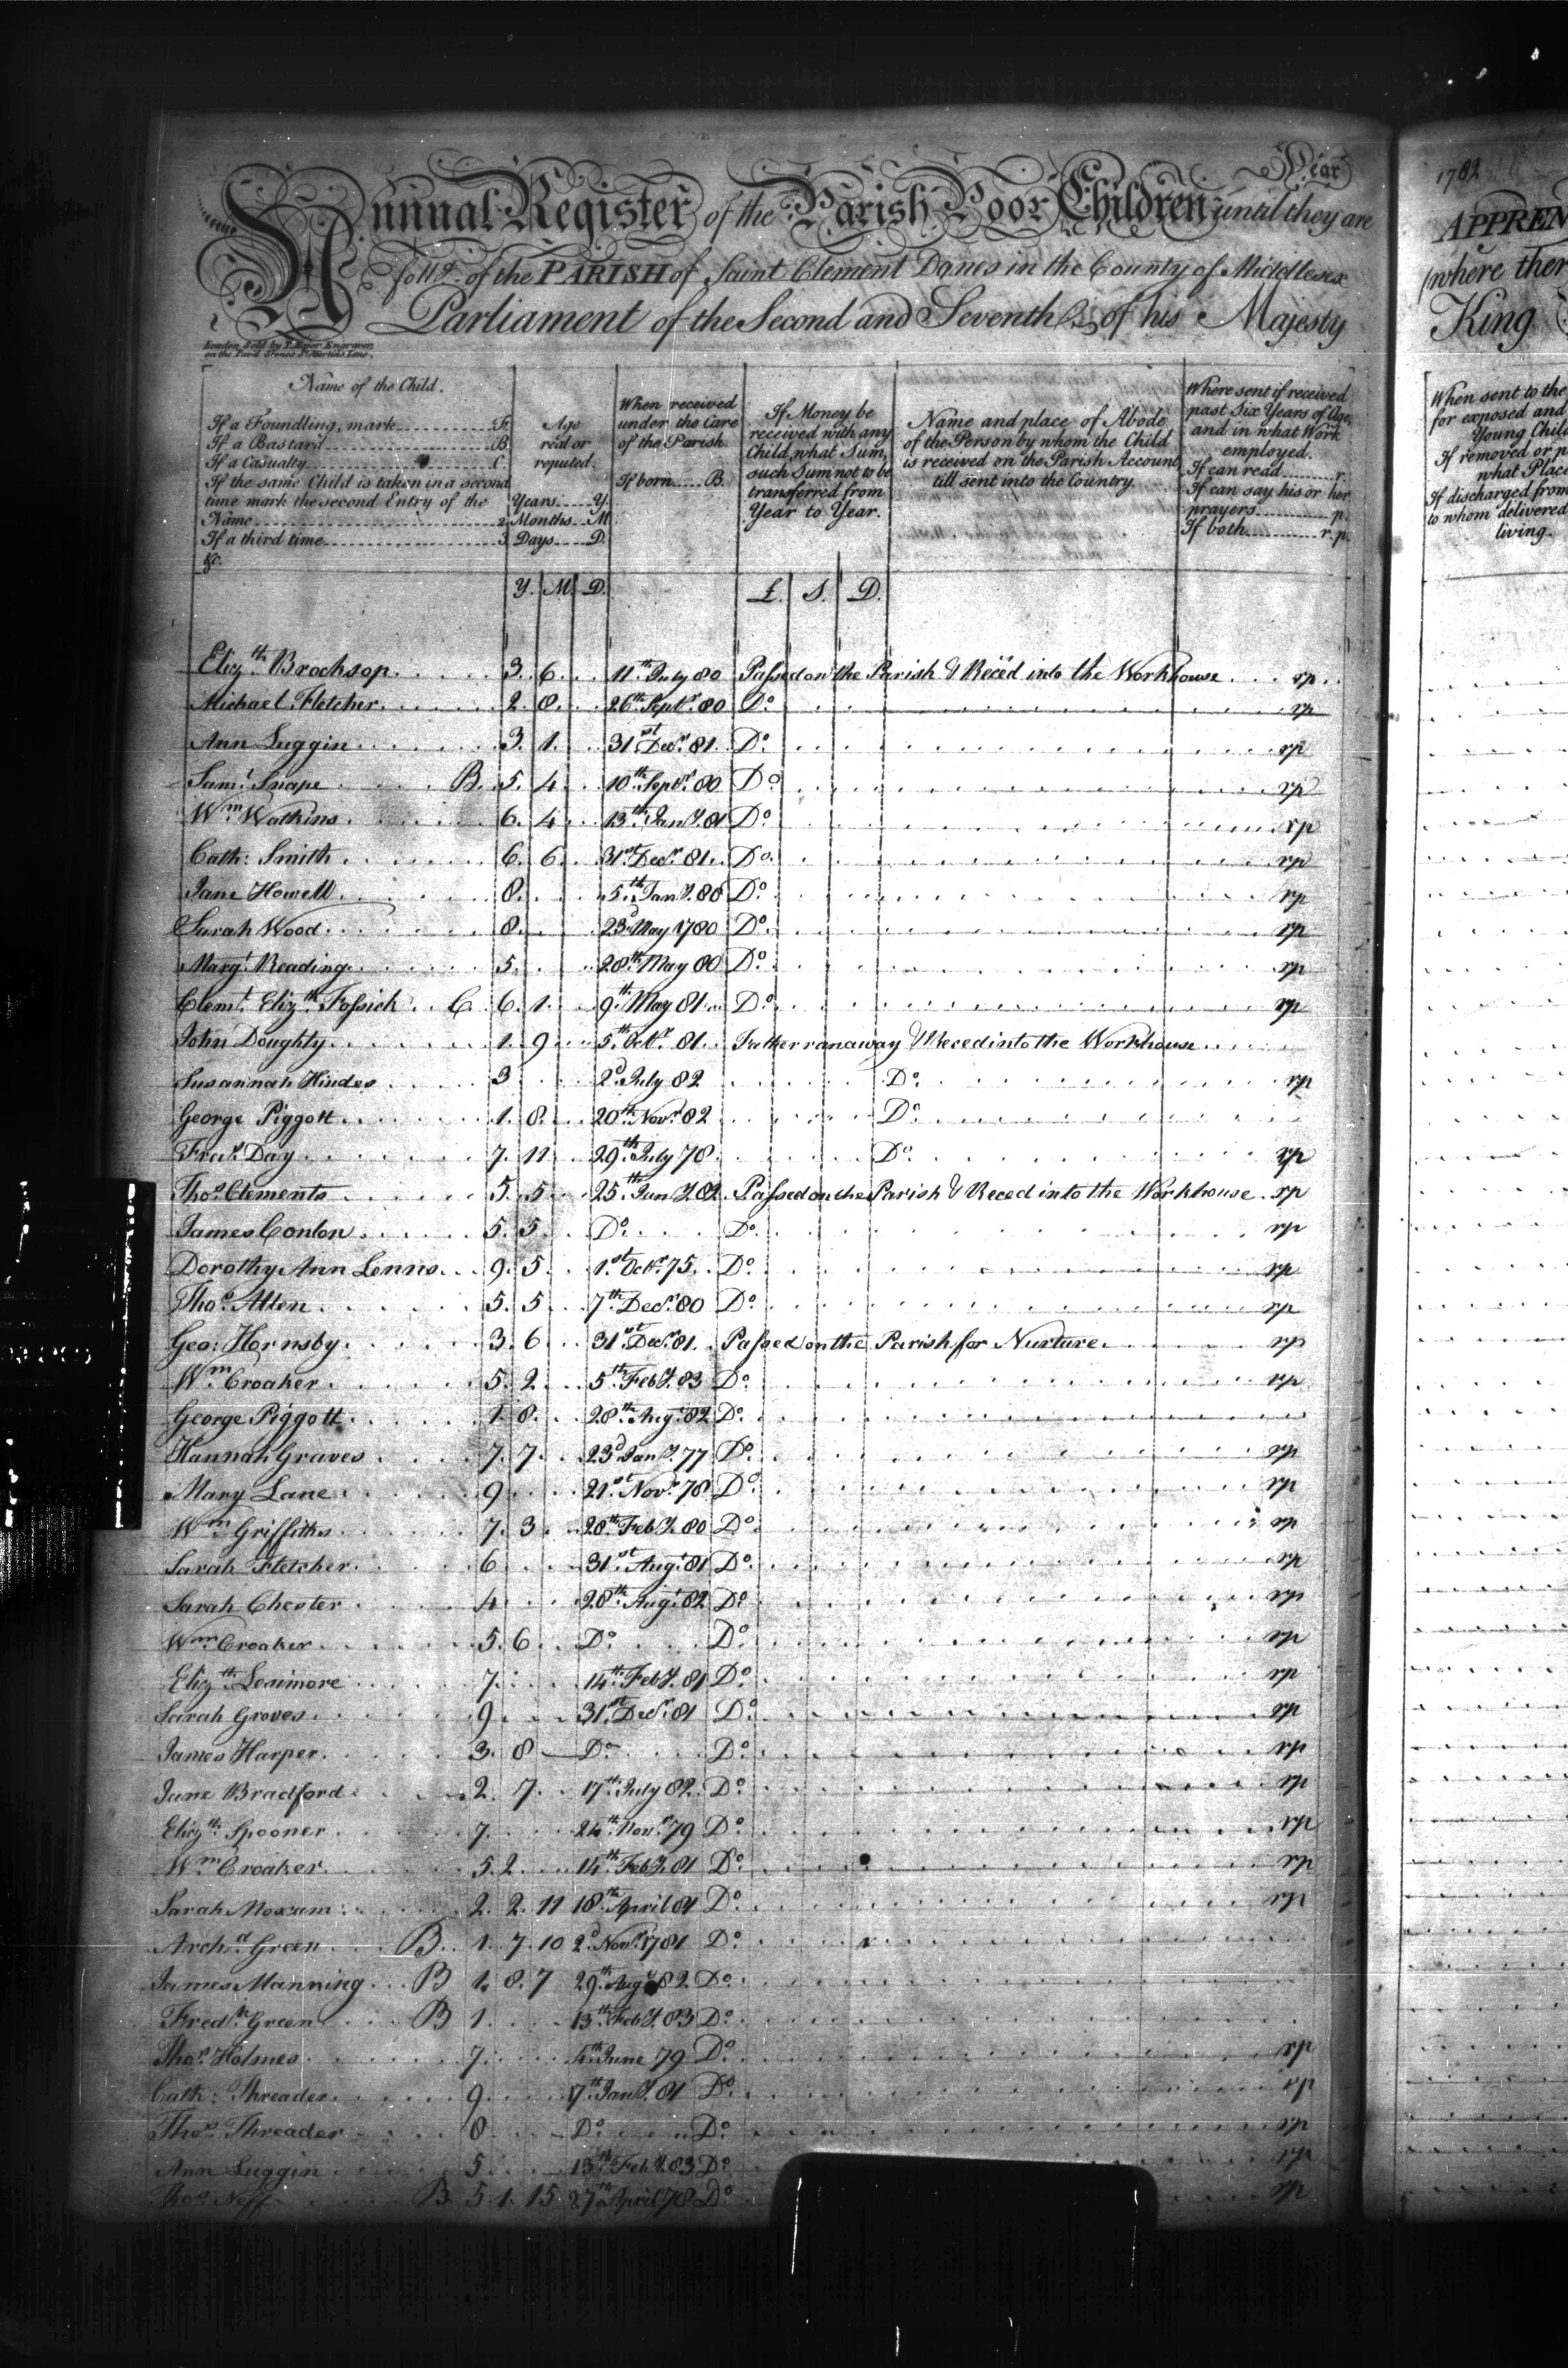 Year
Annual Register of the Parish Poor Children until they are
foll.g of the PARISH of Saint Clement Danes in the County of Middlesex
Parliament of the Second and Seventh of his Majesty
London Sold by Engraver
on the Pav'd Stones St Martins Lane.
Name of the Child.
If a Foundling, mark F.
If a Bastard B
If a Casualty C
If the same Child is taken in a second
time mark the second Entry of the
Name 2.
If a third time 3.
&c.
Age
real or
reputed.
Years Y.
Months M.
Days D.
When received
under the Care
of the Parish.
If born B.
If Money be
received with any
Child, what Sum,
such Sum not to be
transferred from
Year to Year.
Name and place of Abode
of the Person by whom the Child
is received on the Parish Account
till sent into the Country.
Where sent if received
past Six Years of Age,
and in what Work
employed.
If can read r.
If can say his or her
prayers p.
If both r.p.
Y. M. D. £. S. D.
Eliz.th Brocksop 3. 6. 11th July 80 Passed on the Parish & Reced into the Workhouse rp
Michael Fletcher 2. 8. 26th Septr. 80 Do. rp
Ann Luggin 3. 1. 31st Decr. 81. Do. rp
Saml. Snape B. 5. 4. 10th Septr. 80 Do. rp
Wm. Watkins 6. 4. 13th Jany. 81 Do. rp
Cath: Smith 6. 6. 31st Decr. 81. Do. rp
Jane Howell 8. 5th Jany. 80 Do. rp
Sarah Wood 8. 23d May 1780 Do. rp
Margt. Reading 5. 28th May 80 Do. rp
Clemt. Elizth. Fossick C. 6. 1. 9th May 81. Do. rp
John Doughty 1. 9. 5th Octr. 81. Father ran away & Reced into the Workhouse
Susannah Hindes 3 2d July 82 Do. rp
George Piggott 1. 8. 20th Novr. 82 Do.
Fras. Day 7. 11 29th July 78. Do. rp
Thos. Clements 5. 5 25th Jany. 82. Passed on the Parish & Reced into the Workhouse. rp
James Conlon 5. 5 Do. Do. rp
Dorothy Ann Lenns 9. 5 1st Octr. 75. Do. rp
Thos. Allen 5. 5 7th Decr. 80 Do. rp
Geo: Hornsby 3. 6 31st Decr. 81. Passed on the Parish for Nurture. rp
Wm. Croaker 5. 2. 5th Feby. 83 Do. rp
George Piggott 1. 8. 28th Augt. 82 Do.
Hannah Graves 7. 7. 23d Jany. 77 Do. rp
Mary Lane 9 21st Novr. 78 Do. rp
Wm. Griffiths 7. 3 28th Feby. 80 Do. rp
Sarah Fletcher 6 31st Augt. 81 Do. rp
Sarah Chester 4 28th Augt. 82 Do. rp
Wm. Croaker 5. 6 Do. Do. rp
Elizth. Lenimore 7. 14th Feby. 81 Do. rp
Sarah Groves 9 31st Decr. 81 Do. rp
James Harper 3. 8 Do. Do. rp
Jane Bradford 2. 7. 17th July 82. Do. rp
Elizth. Spooner 7. 24th Novr. 79 Do. rp
Wm. Croaker 5. 2. 14th Feby. 81 Do. rp
Sarah Moxum 2. 2. 11 18th April 81 Do. rp
Archd. Green B. 1. 7. 10 2d Novr. 1781 Do.
James Manning B 1. 8. 7 29th Augt. 82. Do.
Fredk. Green B 1 13th Feby. 83 Do.
Thos. Holmes 7. 4th June 79 Do. rp
Cath: Threader 9. 17th Jany. 81 Do. rp
Thos. Threader 8 Do. Do. rp
Ann Luggin 5 13th Feby. 83 Do. rp
Thos. Neff B 5. 1. 15 27th April 78 Do. rp
1782
APPREN
where ther
King
When sent to the
for exposed and
Young Child
If removed or p
what Place
If discharged from
to whom delivered
living.